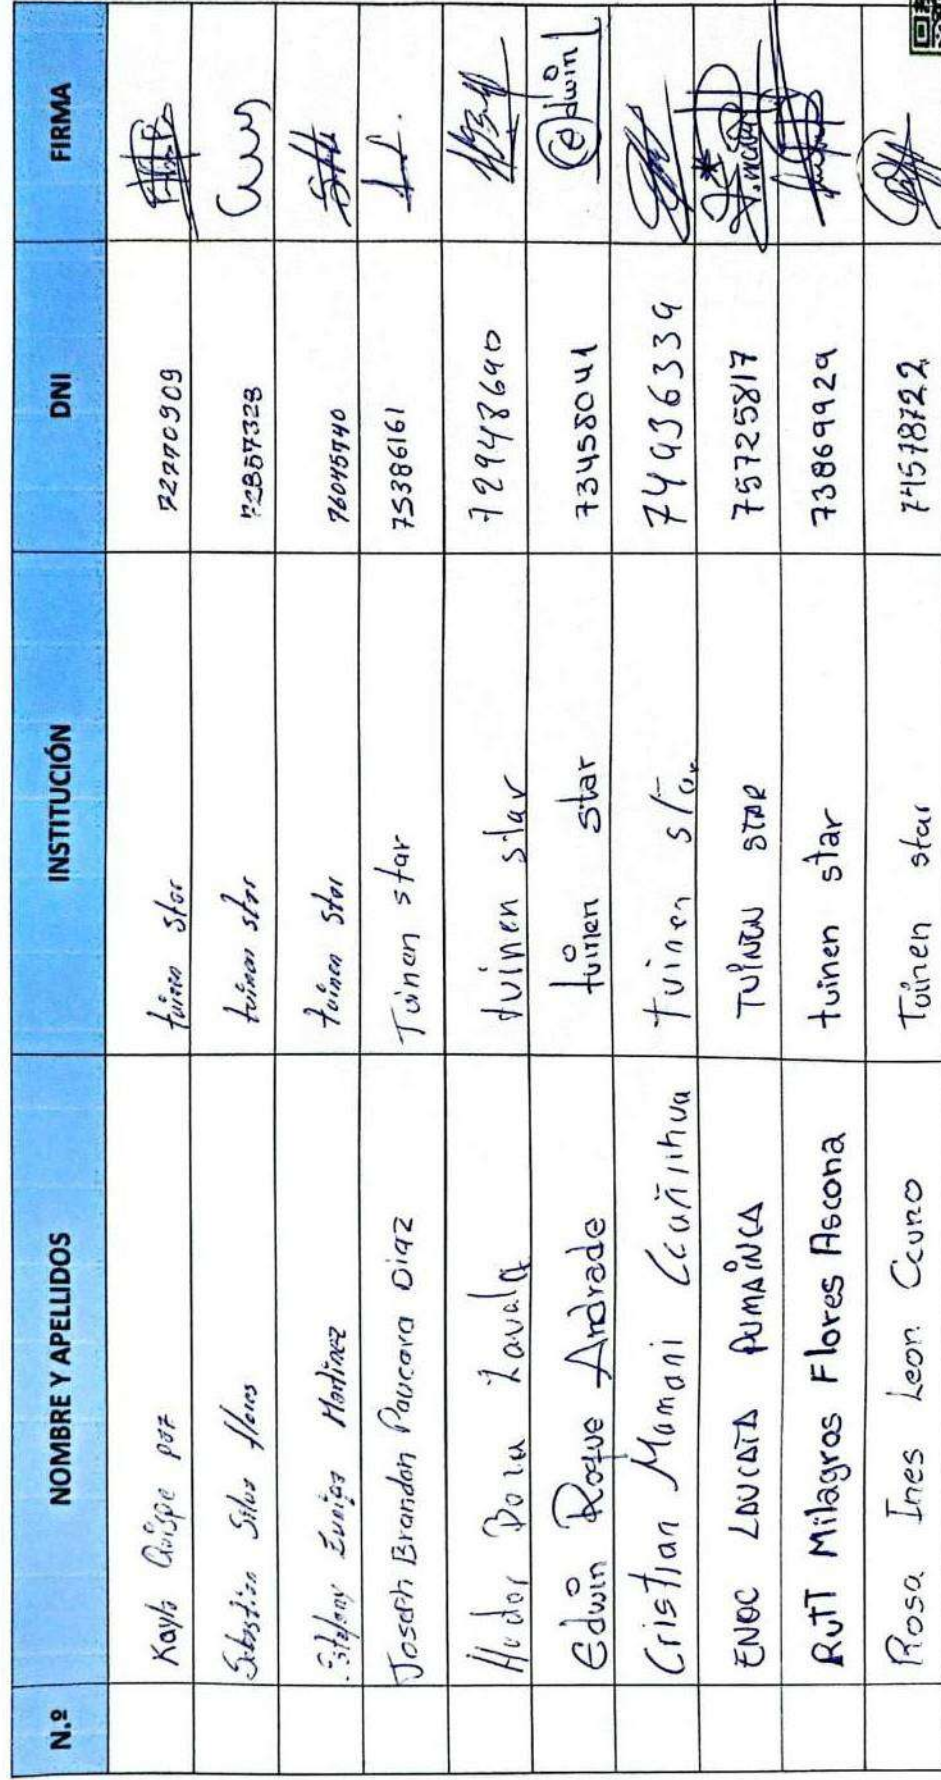 N.º NOMBRE Y APELLIDOS INSTITUCIÓN DNI FIRMA
Kayla Quispe paz tuinen star 72270909
Sebastian Silus flores tuinen star 72857328
Stefany Zuniga Martinez tuinen star 76045740
Joseph Brandon Paucara Diaz Tuinen star 75386161
tuinen star 72948690
Edwin Roque Andrade tuinen star 73458041 edwin
Cristian Mamani Ccañihua tuinen star 74936339
ENOC LAUCATA PUMAINCA TUINEN STAR 75725817
RUTT Milagros Flores Ascona tuinen star 73869929
Rosa Ines Leon Ccuno Tuinen star 74578722